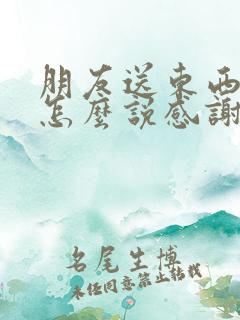 朋友送東西
怎麼說感謝
名尾生博
未經同意禁止轉載